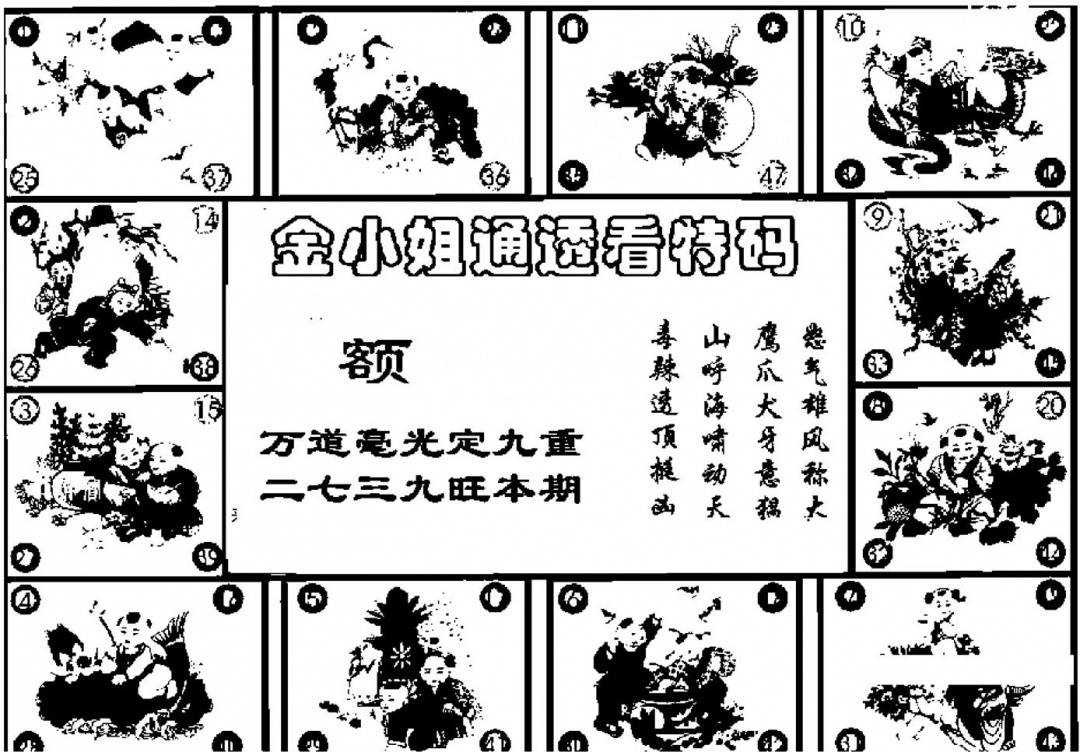 11
10
25
37
36
35
47
金小姐通透看特码
14
26
38
9
21
33
45
额
气雄风称大
鹰爪犬牙意猖
山呼海啸动天
毒辣透顶挺凶
万道毫光定九重
二七三九旺本期
3
15
27
39
8
20
32
44
4
5
6